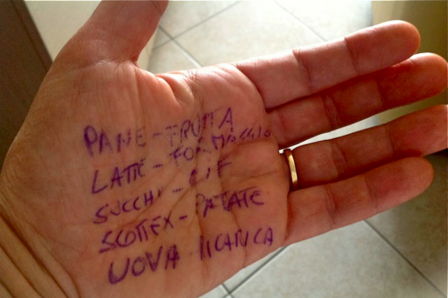 PANE - FRUTTA
LATTE - FORMAGGIO
SUCCHI - LIF
SCOTTEX - PATATE
UOVA